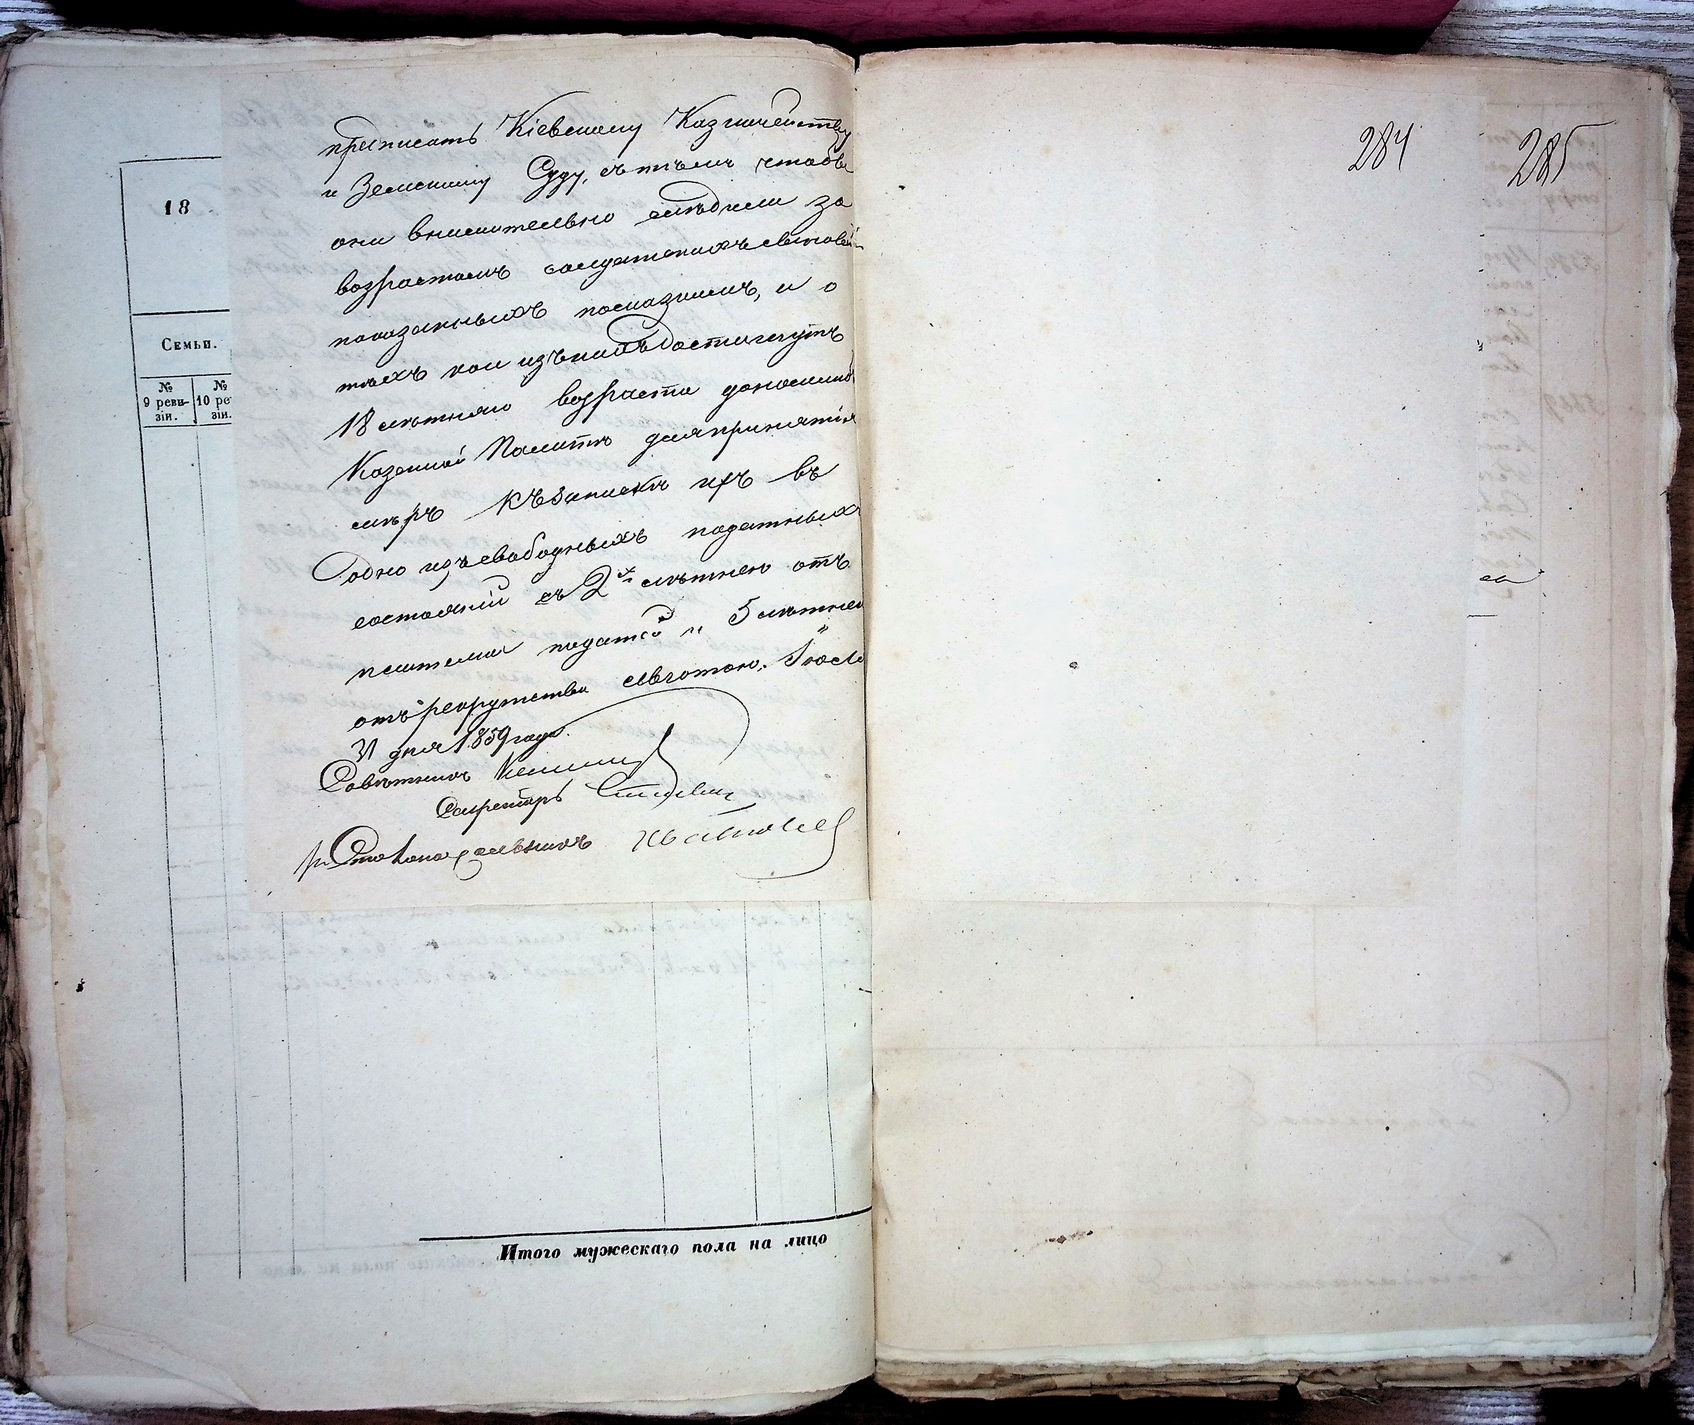 приписать Кіевскому Казначейству
и Земскому Суду, съ тѣмъ чтобы
они внимательно слѣдили за
возрастомъ солдатскихъ сыновей
показанныхъ по сказкамъ, и о
тѣхъ кои изъ нихъ достигнутъ
18 лѣтняго возраста доносили
Казенной Палатѣ для принятія
мѣръ къ запискѣ ихъ въ
одно изъ свободныхъ податныхъ
состояній съ 2х лѣтнею отъ
платежа податей и 5 лѣтнею
отъ рекрутства льготою. Іюля
31 дня 1859 года.
Совѣтникъ
Секретарь
Столоначальникъ
18
Семьи.
№ 9 ревизіи.
№ 10 ре зіи.
Итого мужескаго пола на лицо
284
285